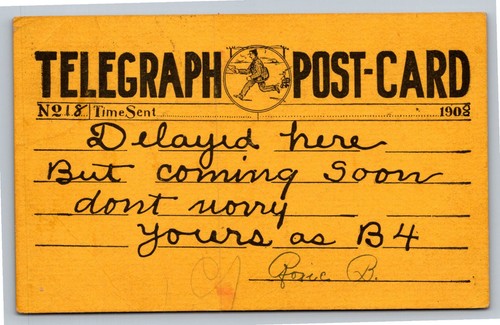 TELEGRAPH POST-CARD
No 18 Time Sent 1908
Delayed here
But coming Soon
dont worry
Yours as B4
Rosie B.